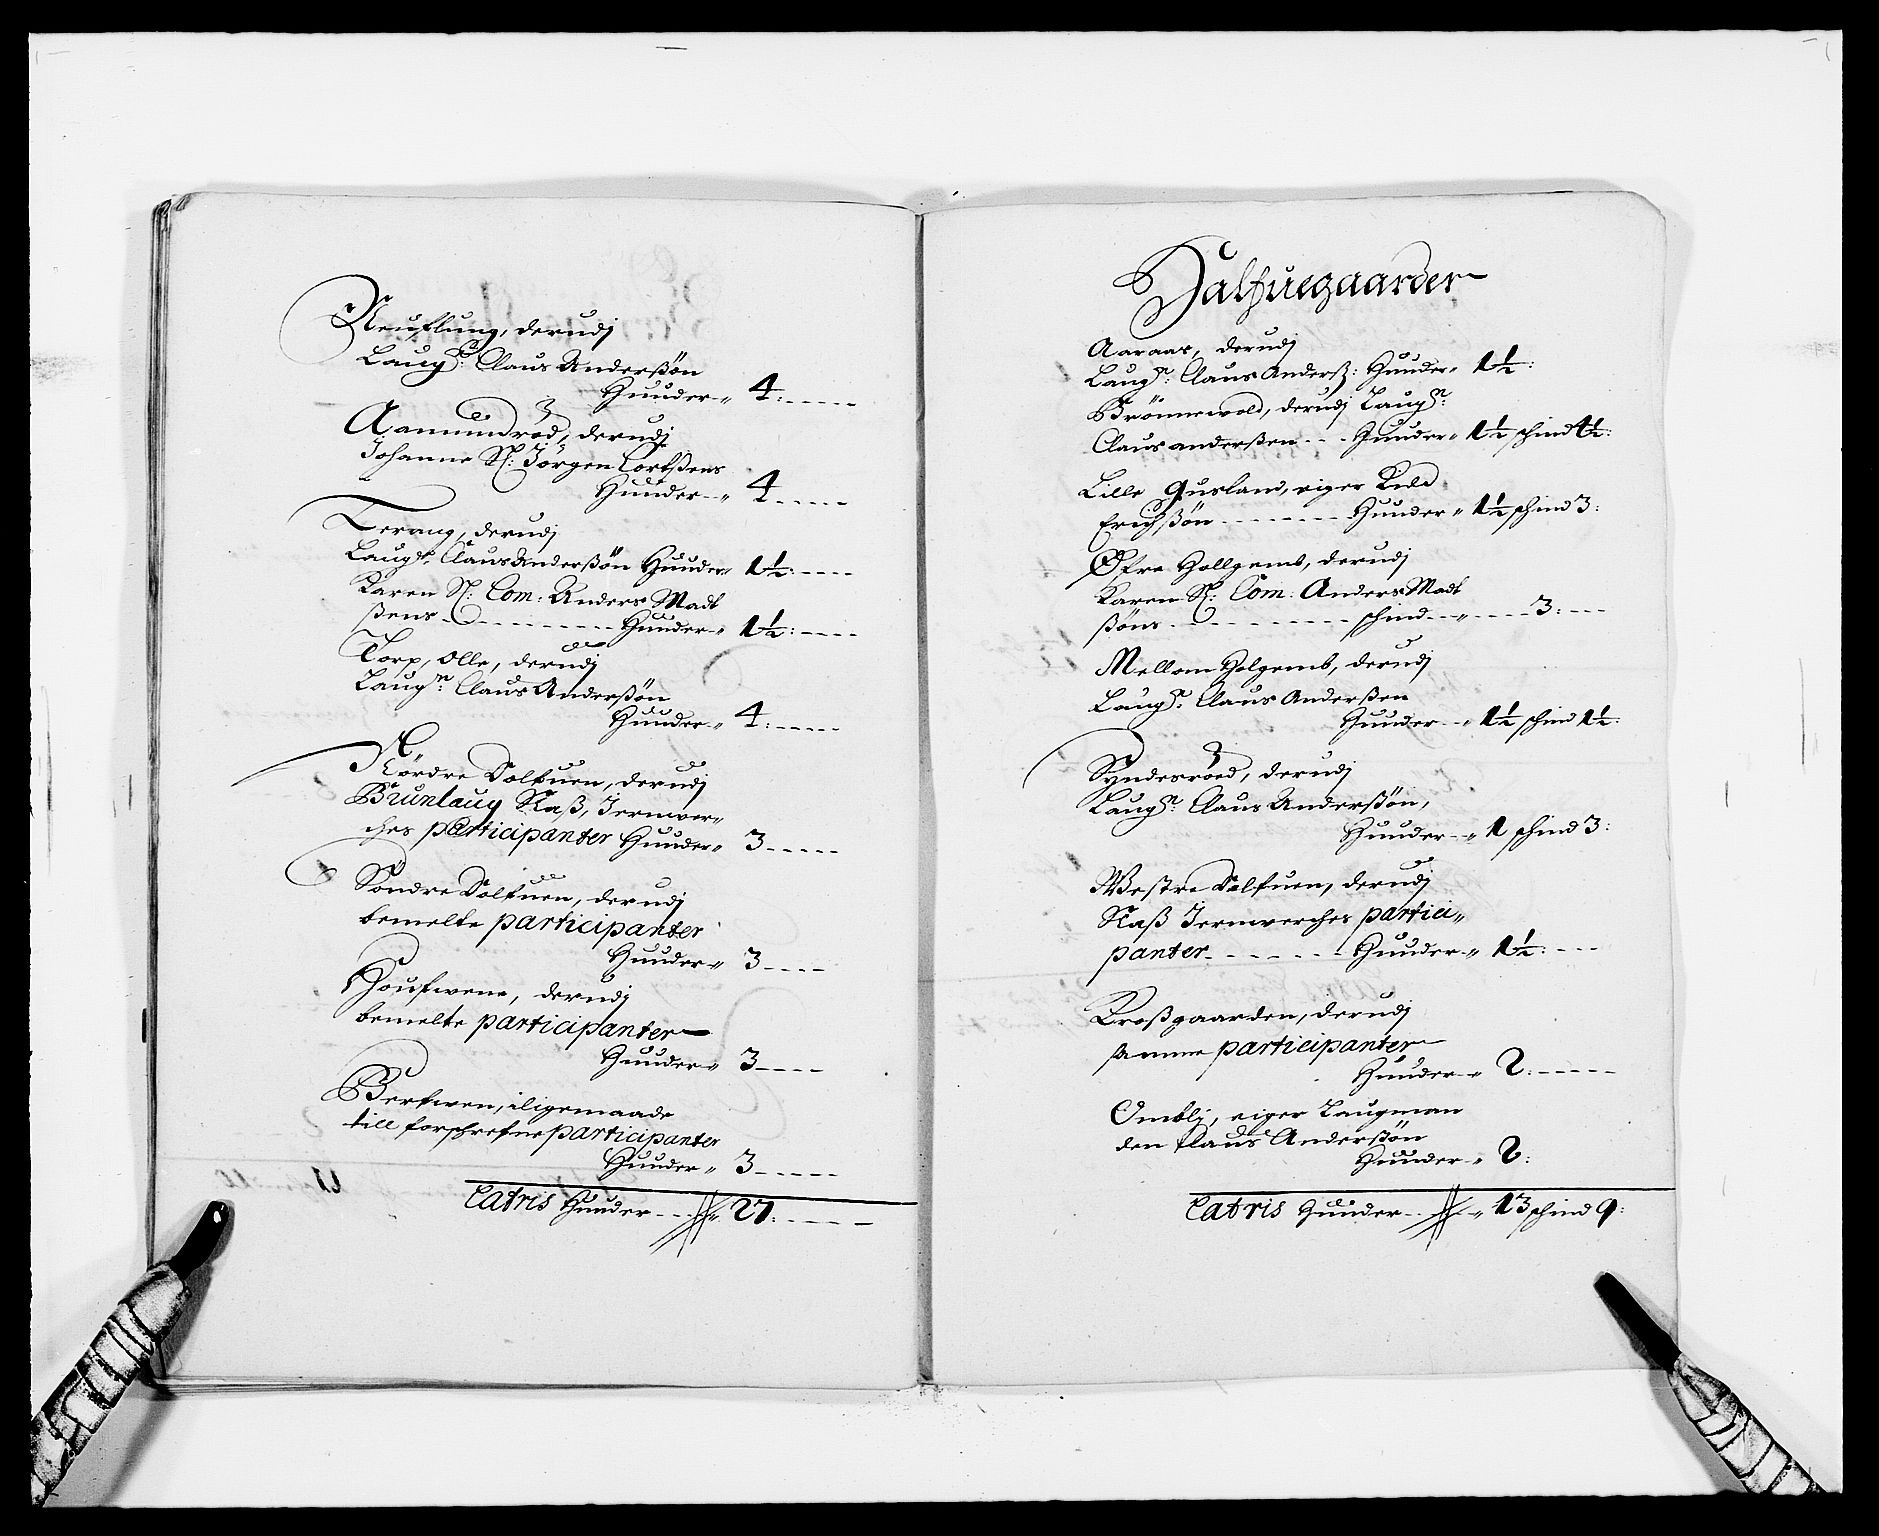 Neuflung, derudj
Laugm: Claus Anderßön
Huuder„ 4:
Aamundrød, derudj
Johanne Sl: Jörgen Cortßens
Huuder„ 4
Terang, derudj
Laugm: Claus Anderßön Huuder„ 1½:
Karen Sl: Com: Anders Madt
ßens Huuder„ 1½:
Torp, Olle, derudj
Laugm: Claus Anderßön
Huuder„ 4:
Nördre Dolfuen, derudj
Brunlaug Naß, Jernver=
ches participanter Huuder„ 3
Söndre Dolfuen, derudj
bemelte participanter
Huuder„ 3
Houfwene, derudj
bemelte participanter
Huuder„ 3
Berfwen, iligemaade
till forschrefne participanter
Huuder„ 3
Latris Huuder „ 27:
Halfuegaarder
Aaraas, derudj
Laugm: Claus Anderß: Huuder„ 1½:
Brönnewold, derudj Laugm:
Claus anderßen Huuder„ 1½ schind 1½:
Lille Gusland, eiger
Erichßön Huuder„ 1½ schind 3:
Øfre Hollgemb, derudj
Karen Sl: Com: Anders Madt
ßöns schind „ 3:
Mellom Holgemb, derudj
Laugm: Claus Anderßen
Huuder„ 1½ schind 1½:
Syndesröed, derudj
Laugm: Claus Anderßön,
Huuder„ 1 schind 3:
Westre Dolfuen, derudj
Naß Jernverches partici„
panter Huuder„ 1½:
Kroßgaarden, derudj
samme participanter
Huuder„ 2:
Omblj, eiger Laugman
den Claus Anderßön
Huuder„ 2:
Latris Huuder „ 13 schind 9: